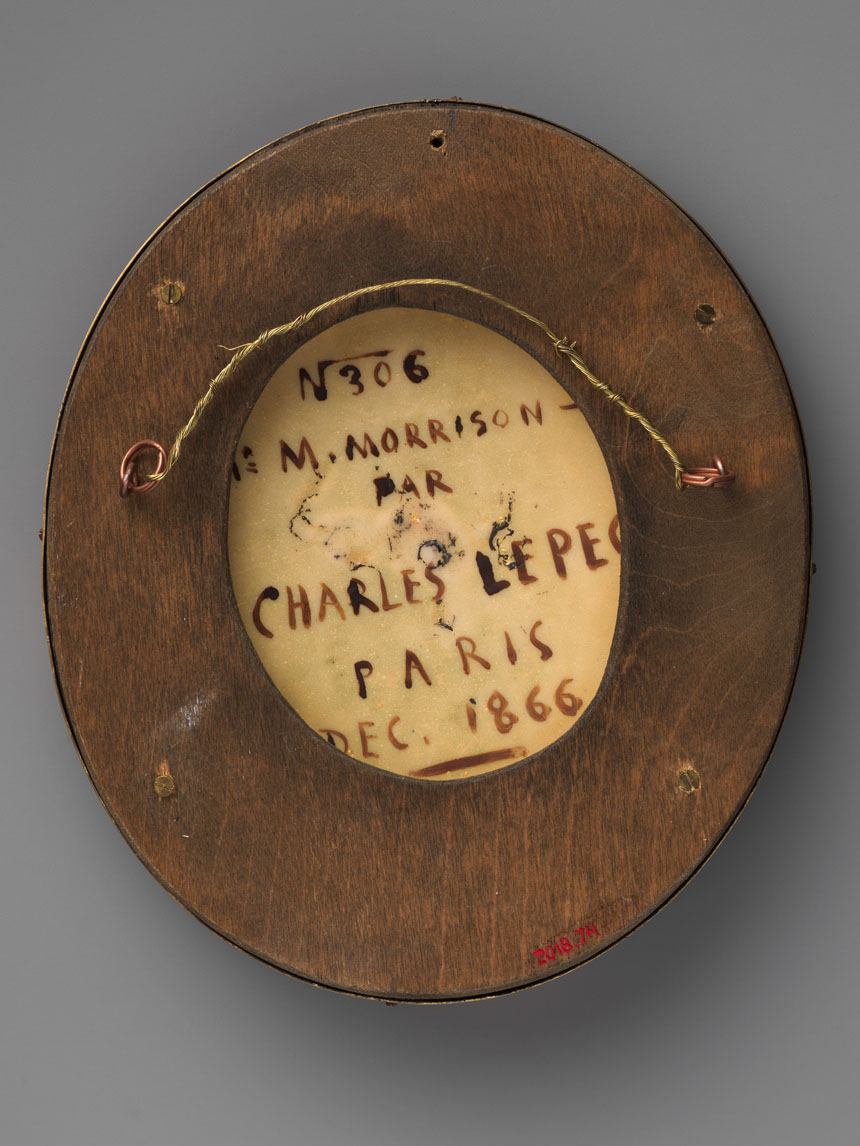 N 306
M. MORRISON -
PAR
CHARLES LEPEC
PARIS
DEC. 1866
2018.74